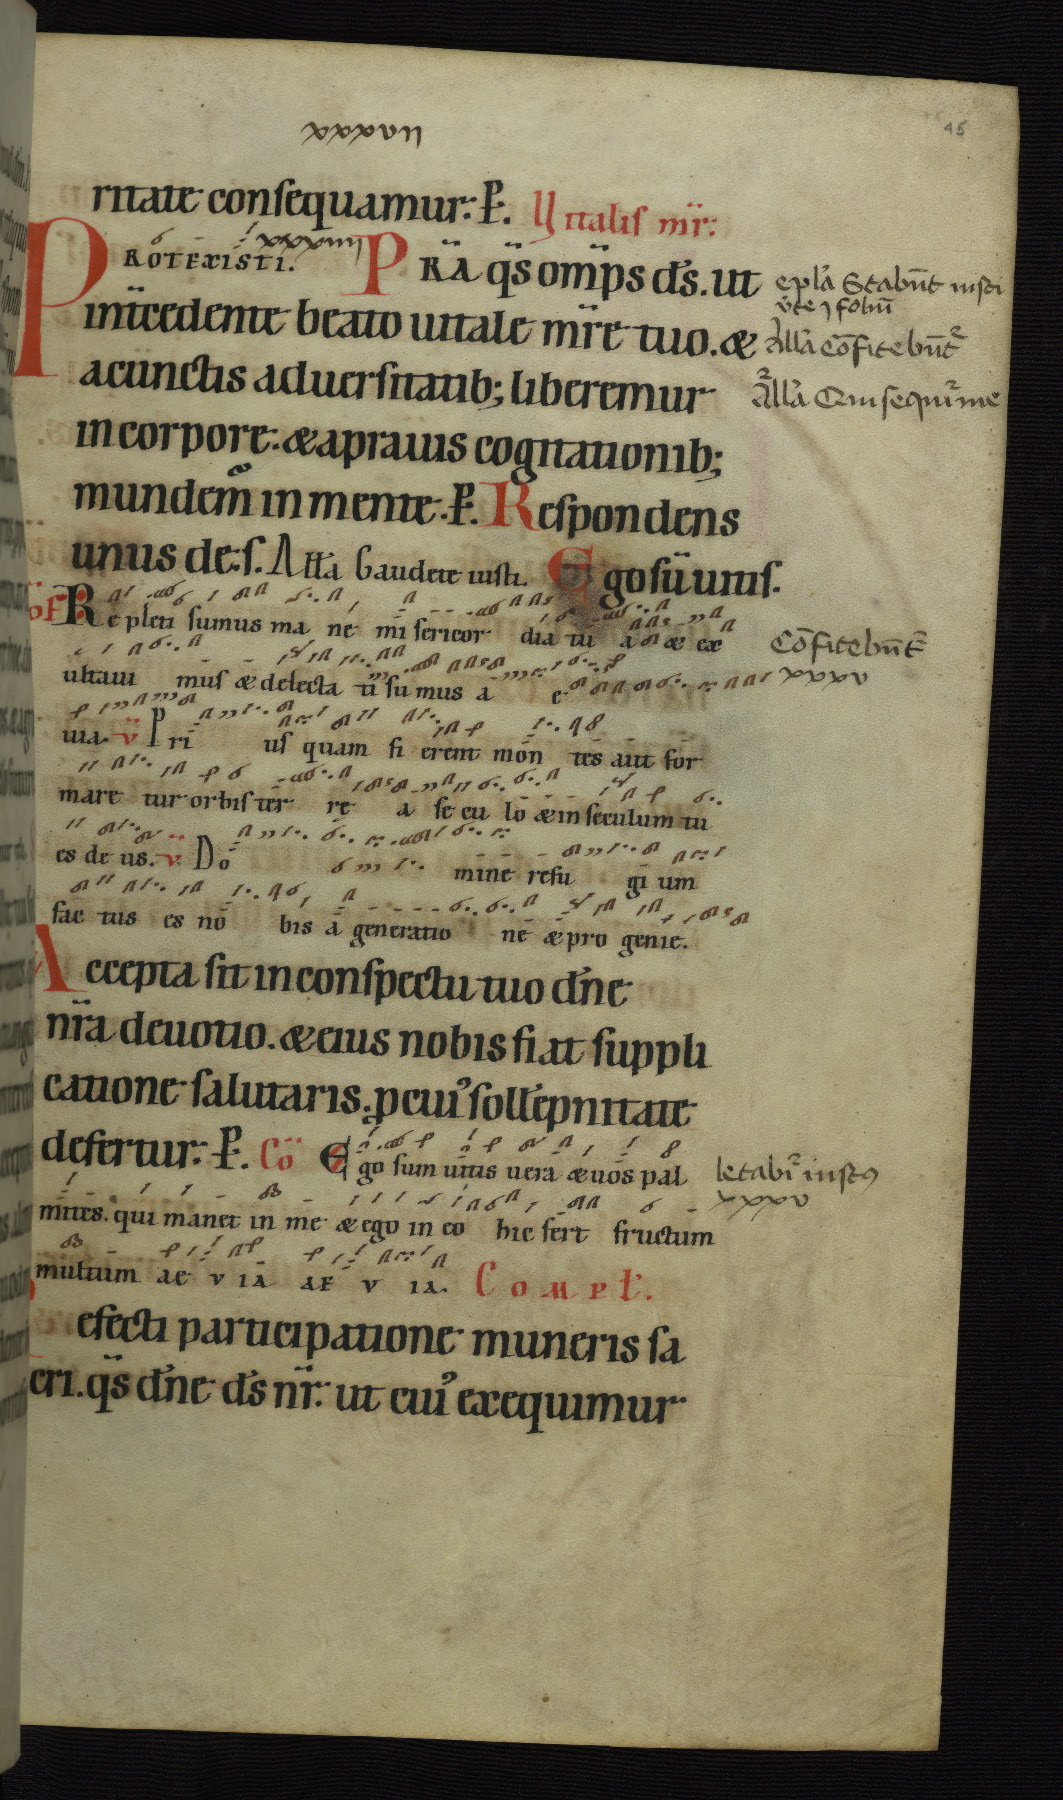 45
ritate consequamur. P̄.  Vitalis m̄r.
PROTEXISTI. PR̄A q̄s om̄ps d̄s. ut
int̄cedente beato uitale m̄re tuo. æ
a cunctis aduersitatib; liberemur
in corpore. æ a prauis cogitationib;
mundem̄ in mente. P̄. Respondens
unus de. s. All̄a Gaudete iusti. Ego sū uitis.
epl̄a Stabūt iusti
All̄a Cōfitebūt
All̄a Qui sequit̄ me
OF Repleti sumus ma ne mi sericor dia tu a æ ex
ultaui mus æ delecta ti sumus a e
Cōfitebūt
xxxv
uia. v̄ Pri us quam fi erent mon tes aut for
mare tur orbis ter re a se cu lo æ in seculum tu
es de us. v̄ Do mine refu gi um
fac tus es no bis a generatio ne æ pro genie.
Accepta sit in conspectu tuo d̄ne
nr̄a deuotio. æ eius nobis fiat suppli
catione salutaris. p cui' sollēpnitate
defertur. P̄. Cō Ego sum uitis uera æ uos pal
letabit̄ iust9
xxxv
mites. qui manet in me æ ego in eo hic fert fructum
multum ae v ia ae v ia. Compl̄.
efecti participatione muneris sa
cri. q̄s d̄ne d̄s nr̄. ut cui' exequimur